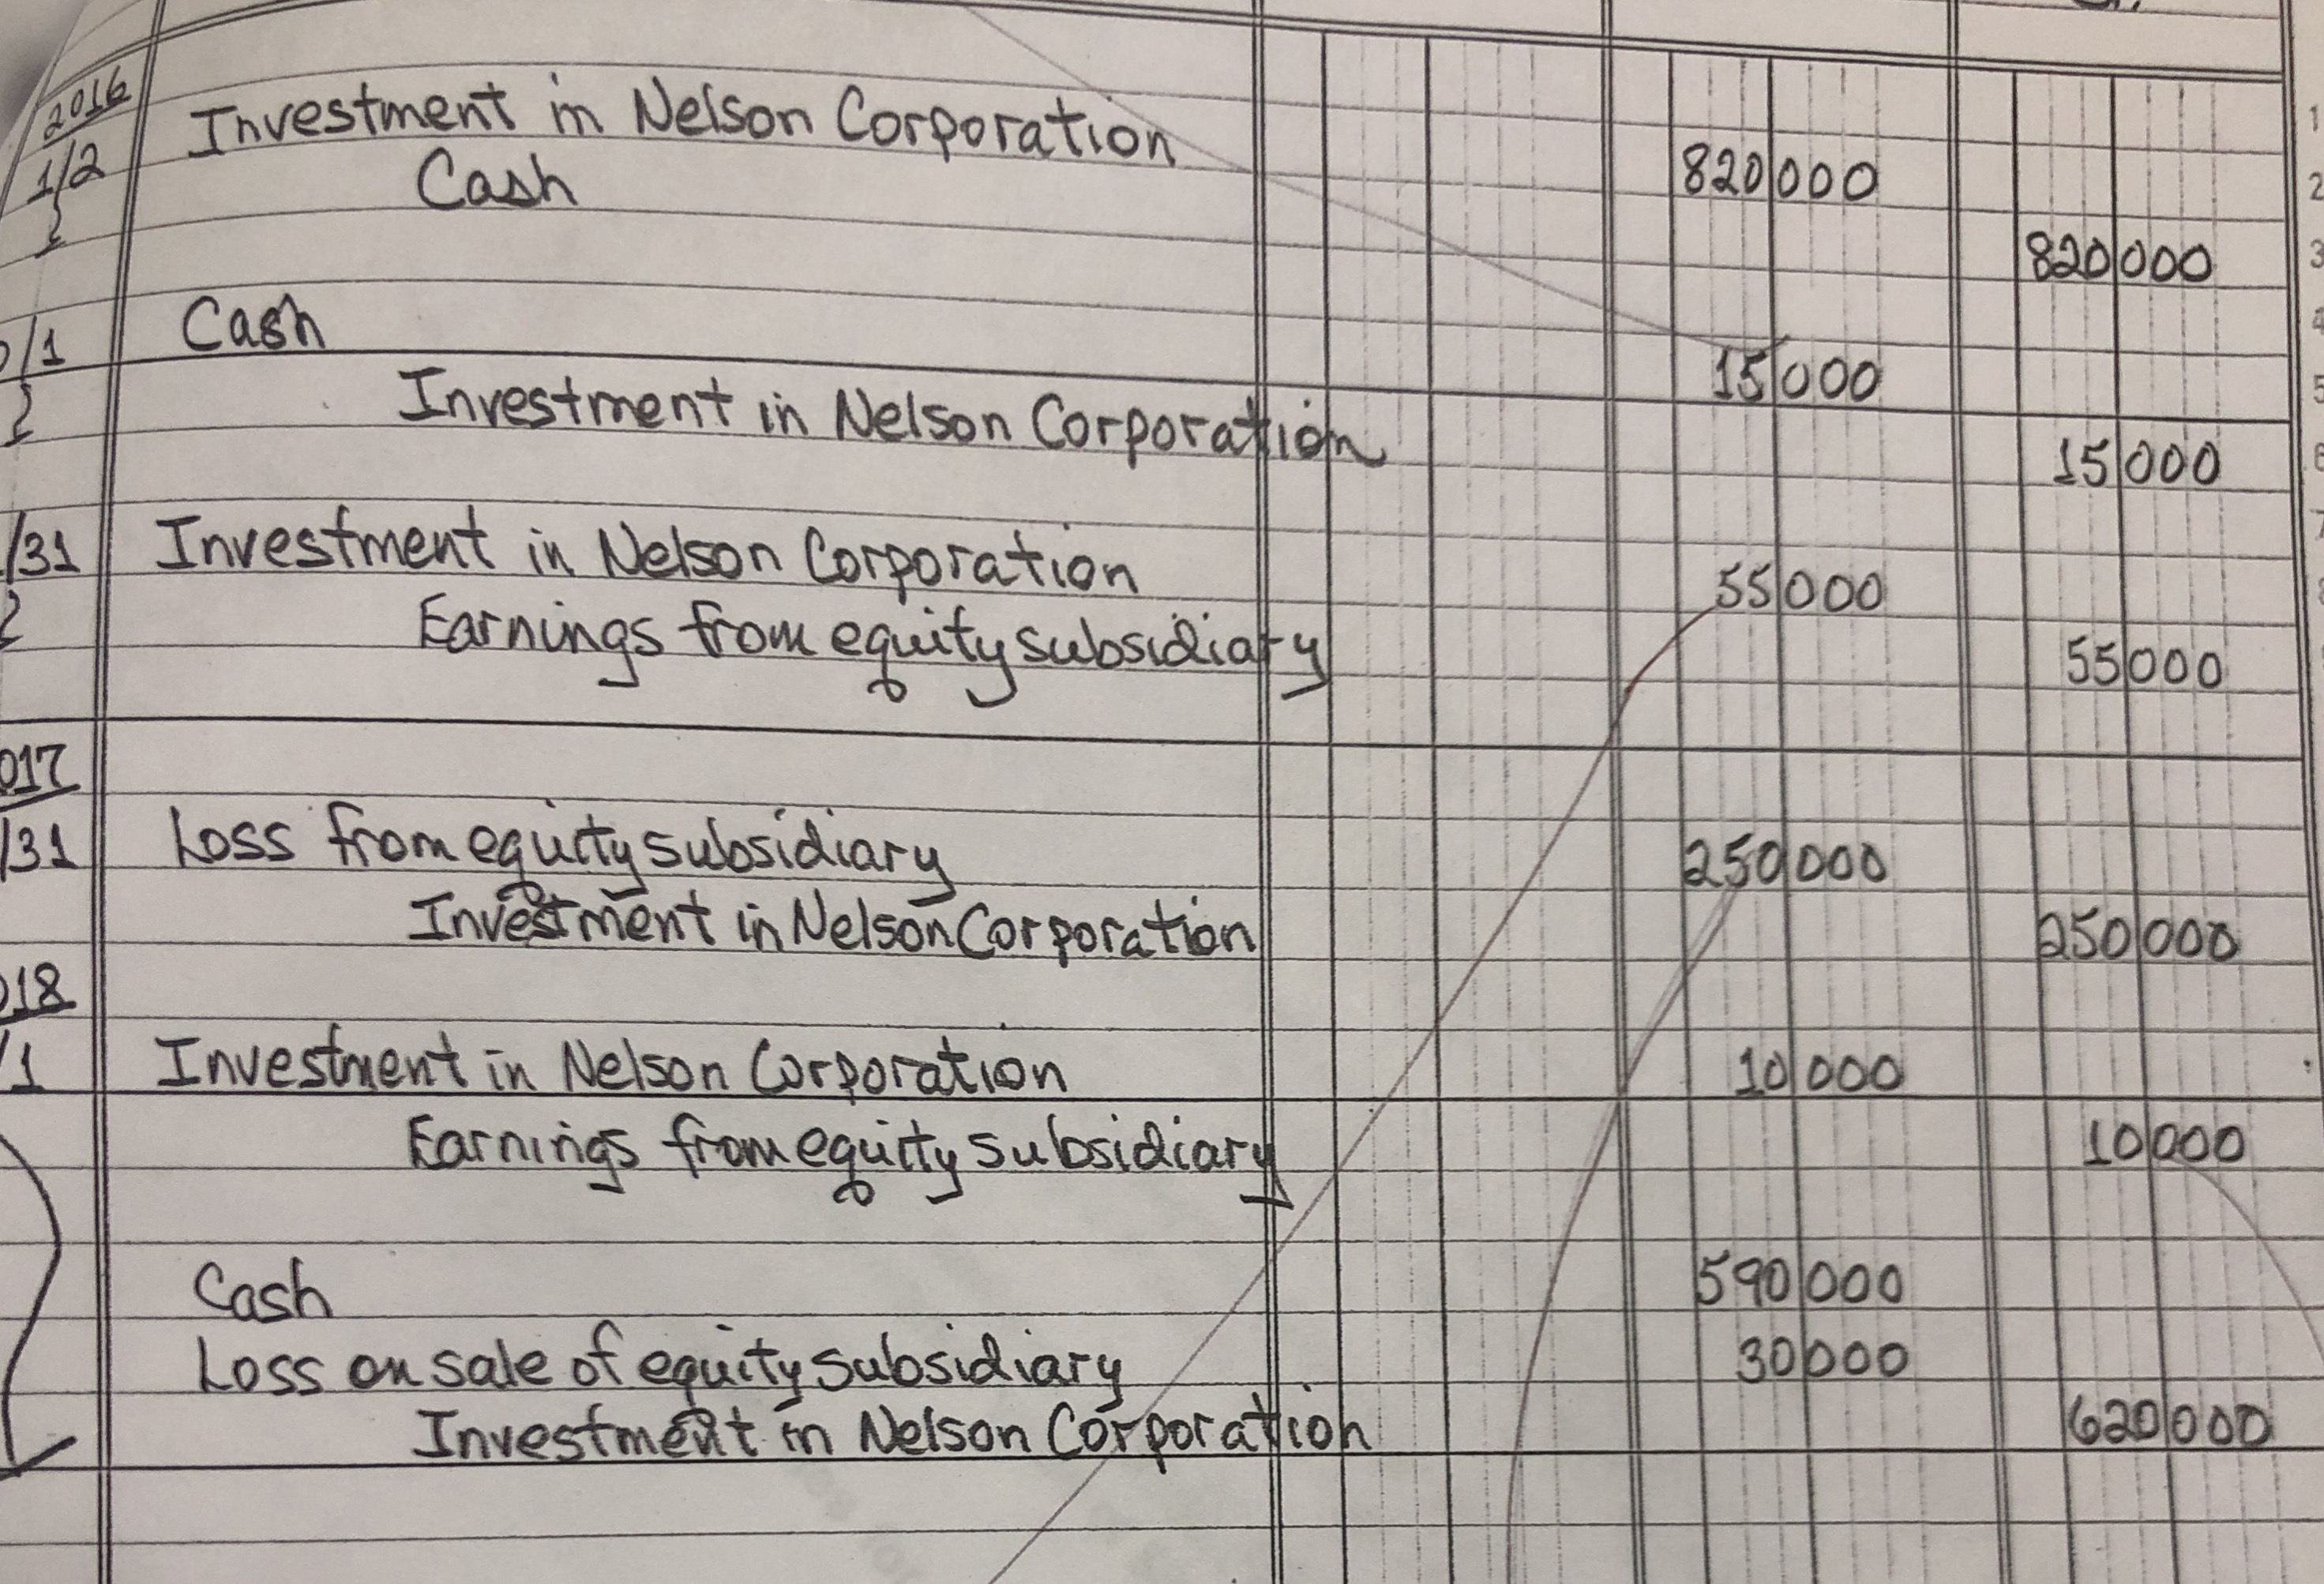 2016
1/2 Investment in Nelson Corporation 820 000
Cash 820 000
/1 Cash 15 000
Investment in Nelson Corporation 15 000
/31 Investment in Nelson Corporation 55 000
Earnings from equity subsidiary 55 000
017
/31 Loss from equity subsidiary 250 000
Investment in Nelson Corporation 250 000
018
/1 Investment in Nelson Corporation 10 000
Earnings from equity subsidiary 10 000
Cash 590 000
Loss on sale of equity subsidiary 30 000
Investment in Nelson Corporation 620 000
1
2
3
4
5
6
7